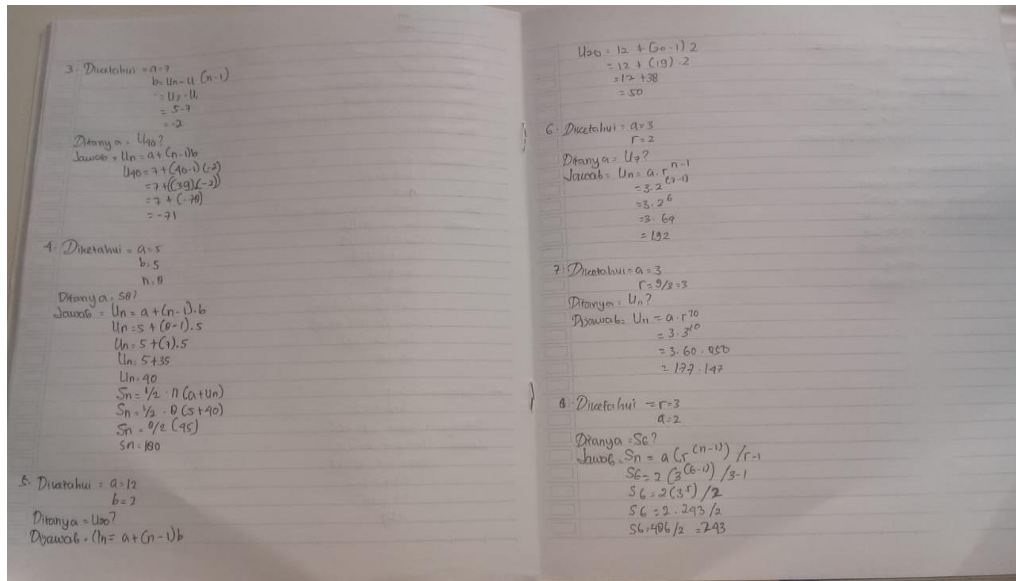 3. Diketahui = a=7
b= Un - U (n-1)
= U2 - U1
= 5-7
= -2
Ditanya = U40?
Jawab = Un = a + (n-1)b
U40 = 7 + (40-1) (-2)
= 7 + ((39)(-2))
= 7 + (-78)
= -71
4. Diketahui = a=5
b=5
n=8
Ditanya = S8?
Jawab = Un = a + (n-1).b
Un = 5 + (8-1).5
Un = 5 + (7).5
Un = 5+35
Un = 40
Sn = 1/2 . n (a+Un)
Sn = 1/2 . 8 (5+40)
Sn = 8/2 (45)
Sn = 180
5. Diketahui = a=12
b=2
Ditanya = U20?
Dijawab = Un = a + (n-1)b
U20 = 12 + (20-1) 2
= 12 + (19) . 2
= 12 + 38
= 50
6. Diketahui = a=3
r=2
Ditanya = U7?
Jawab = Un = a . r^n-1
= 3.2^(7-1)
= 3.2^6
= 3. 64
= 192
7. Diketahui = a=3
r = 9/3 = 3
Ditanya = Un?
Dijawab = Un = a . r^10
= 3.3^10
= 3.60.050
= 177.147
8. Diketahui = r=3
a=2
Ditanya = S6?
Jawab = Sn = a (r^(n-1)) / r-1
S6 = 2 (3^(6-1)) / 3-1
S6 = 2 (3^5) / 2
S6 = 2 . 243 / 2
S6 = 486 / 2 = 243